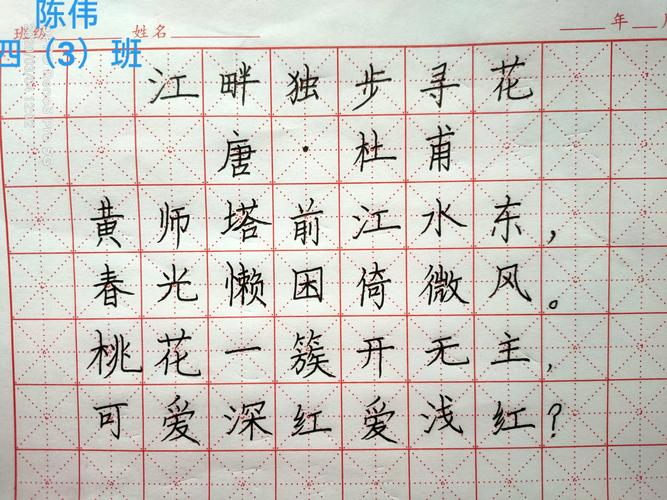 陈伟
四（3）班
班级 姓名 年
江畔独步寻花
唐·杜甫
黄师塔前江水东，
春光懒困倚微风。
桃花一簇开无主，
可爱深红爱浅红？